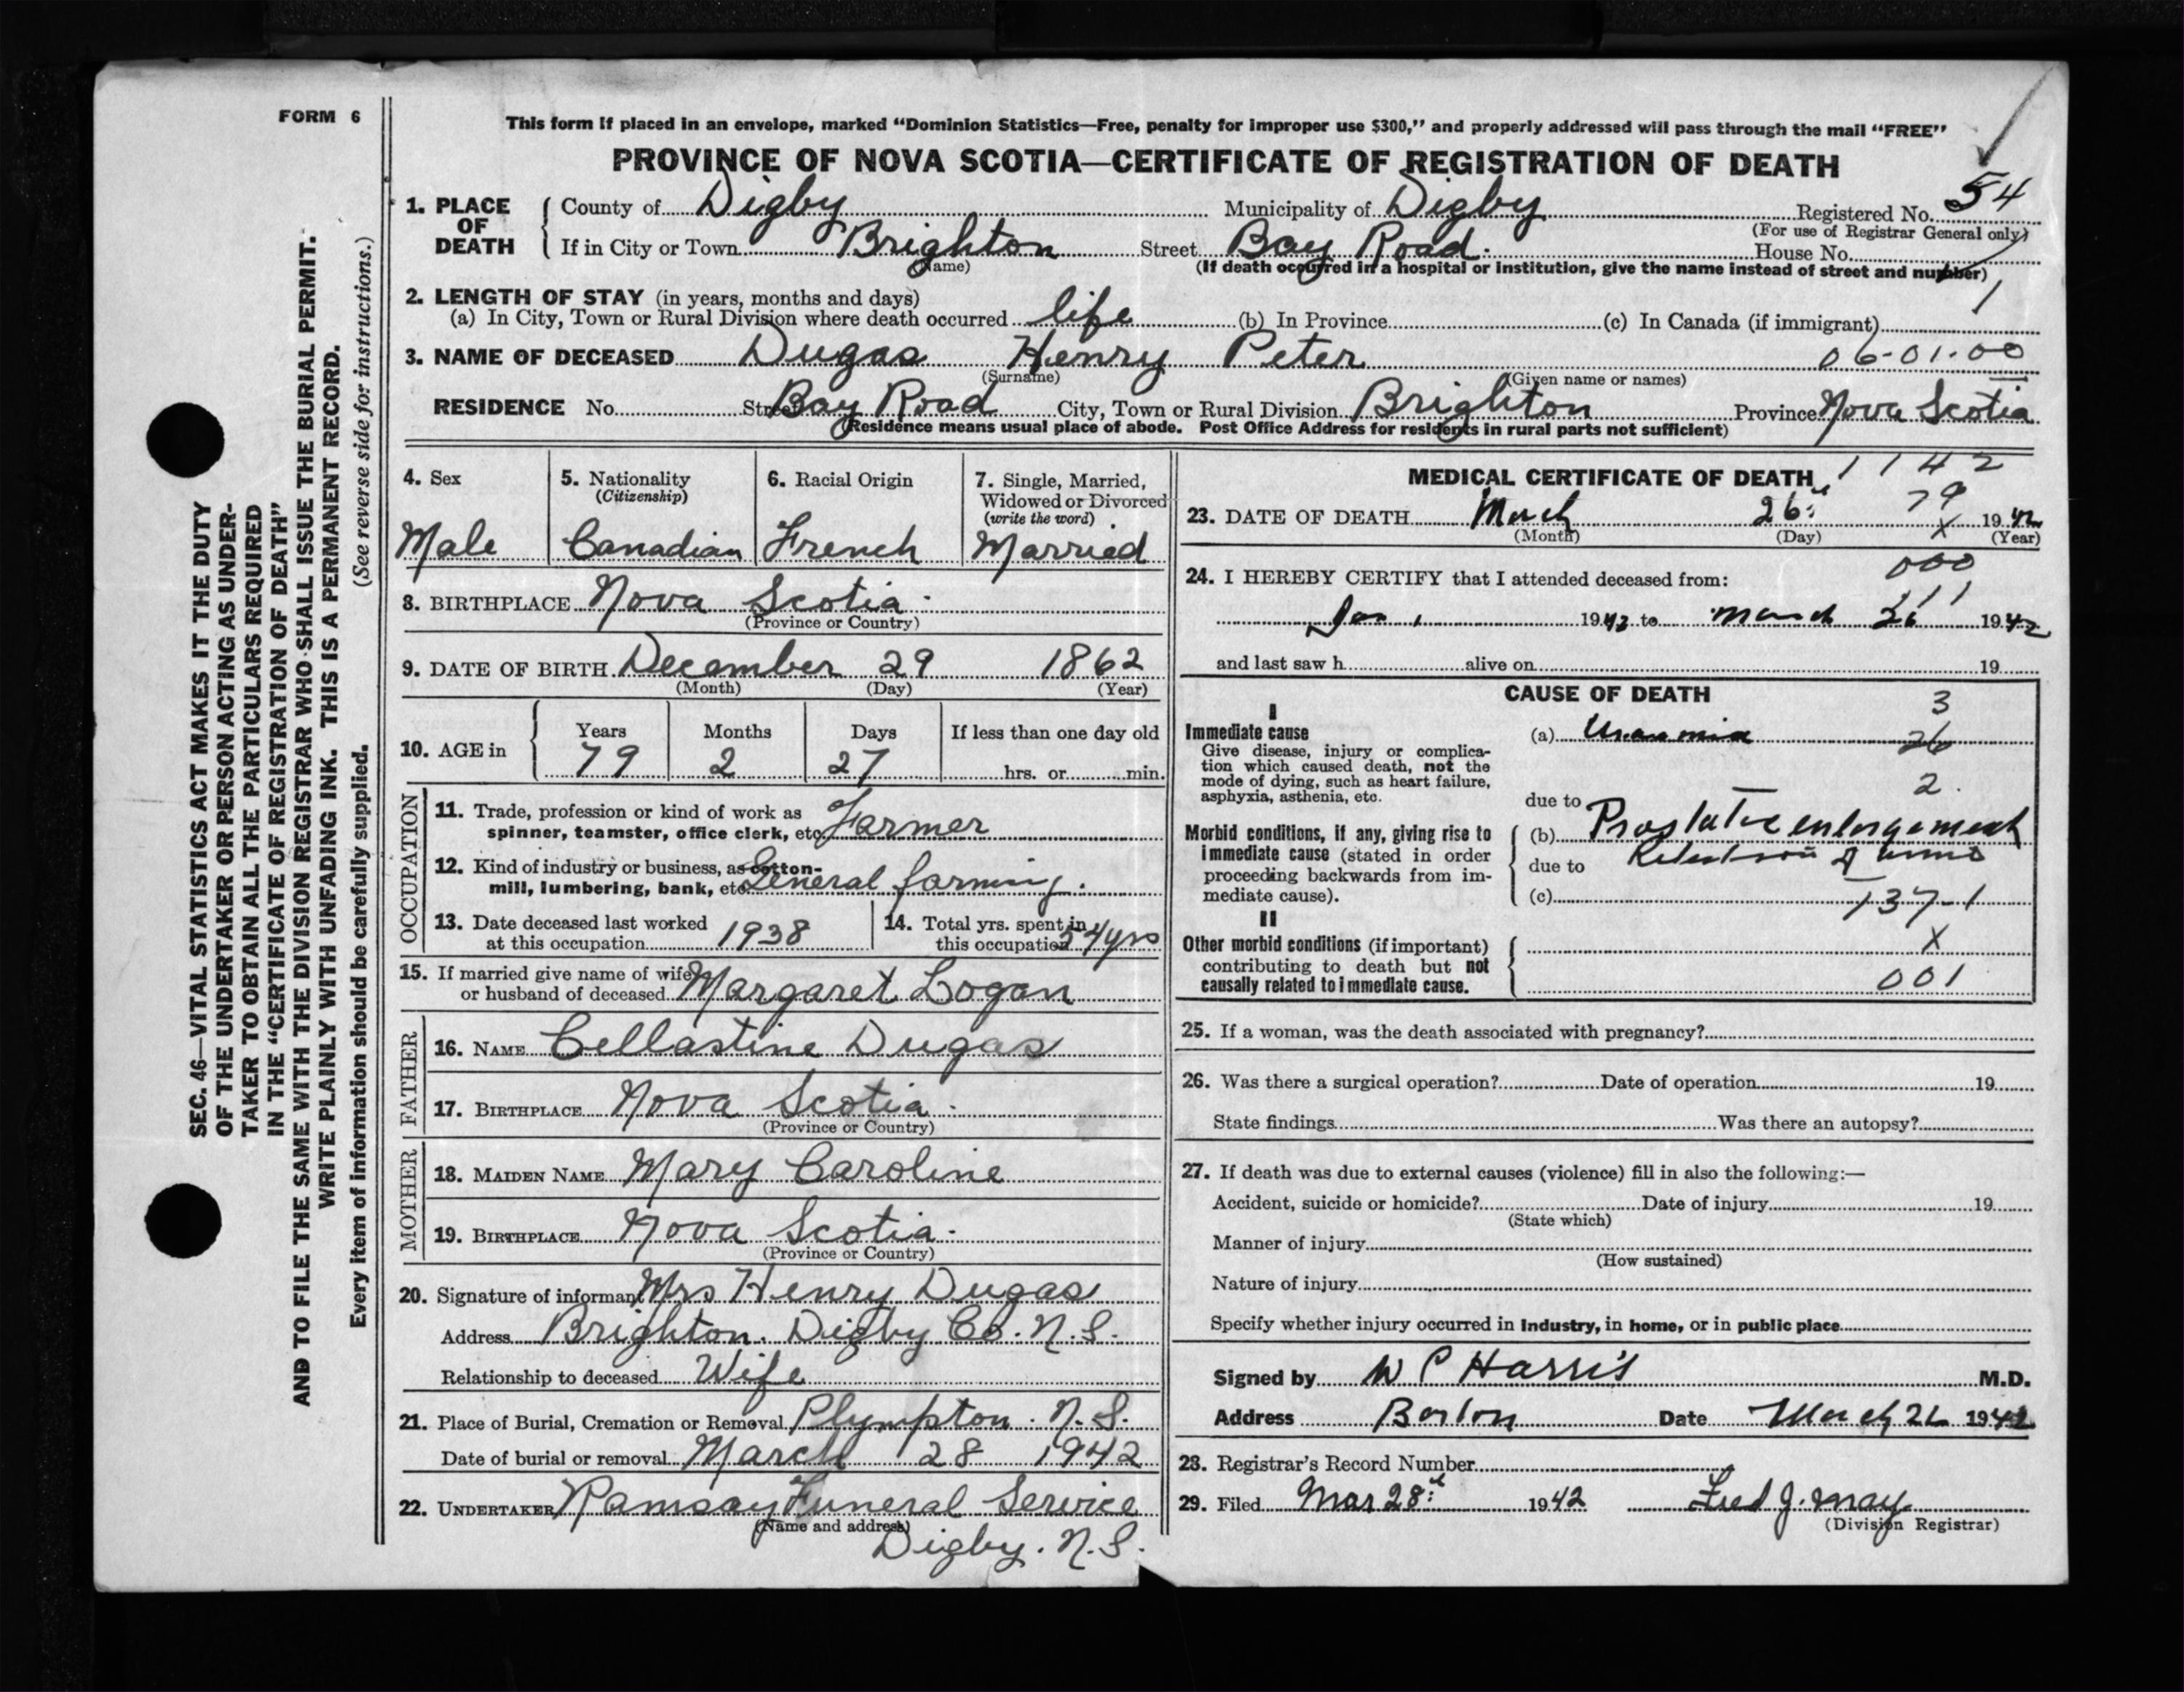 FORM 6
This form if placed in an envelope, marked "Dominion Statistics—Free, penalty for improper use $300," and properly addressed will pass through the mail "FREE"
PROVINCE OF NOVA SCOTIA—CERTIFICATE OF REGISTRATION OF DEATH
1. PLACE OF DEATH County of Digby Municipality of Digby Registered No. 54
(For use of Registrar General only)
If in City or Town Brighton Street Bay Road. House No.
(Name) (If death occurred in a hospital or institution, give the name instead of street and number)
1
2. LENGTH OF STAY (in years, months and days)
(a) In City, Town or Rural Division where death occurred life (b) In Province (c) In Canada (if immigrant)
3. NAME OF DECEASED Dugas Henry Peter 06-01-00
(Surname) (Given name or names)
RESIDENCE No. Street Bay Road City, Town or Rural Division Brighton Province Nova Scotia
(Residence means usual place of abode. Post Office Address for residents in rural parts not sufficient)
4. Sex Male
5. Nationality (Citizenship) Canadian
6. Racial Origin French
7. Single, Married, Widowed or Divorced (write the word) Married
8. BIRTHPLACE Nova Scotia
(Province or Country)
9. DATE OF BIRTH December 29 1862
(Month) (Day) (Year)
10. AGE in Years Months Days If less than one day old
79 2 27 hrs. or min.
OCCUPATION
11. Trade, profession or kind of work as
spinner, teamster, office clerk, etc. Farmer
12. Kind of industry or business, as cotton-
mill, lumbering, bank, etc. General farming.
13. Date deceased last worked at this occupation 1938
14. Total yrs. spent in this occupation 54 yrs
15. If married give name of wife
or husband of deceased Margaret Logan
FATHER
16. NAME Cellastine Dugas
17. BIRTHPLACE Nova Scotia
(Province or Country)
MOTHER
18. MAIDEN NAME Mary Caroline
19. BIRTHPLACE Nova Scotia
(Province or Country)
20. Signature of informant Mrs Henry Dugas
Address Brighton. Digby Co. N.S.
Relationship to deceased Wife
21. Place of Burial, Cremation or Removal Plympton. N.S.
Date of burial or removal March 28 1942
22. UNDERTAKER Ramsay Funeral Service
(Name and address)
Digby. N.S.
MEDICAL CERTIFICATE OF DEATH 1142
79
23. DATE OF DEATH March 26 X 1942
(Month) (Day) (Year)
000
24. I HEREBY CERTIFY that I attended deceased from:
111
Jan 1 19 to March 26 1942
and last saw h alive on 19
CAUSE OF DEATH
3
I
Immediate cause (a) Uraemia 26
Give disease, injury or complica-
tion which caused death, not the
mode of dying, such as heart failure,
asphyxia, asthenia, etc.
2.
due to
Morbid conditions, if any, giving rise to (b) Prostatic enlargement
immediate cause (stated in order
proceeding backwards from im-
mediate cause).
due to Retention of urine
(c) 137-1
II
Other morbid conditions (if important) X
contributing to death but not
causally related to immediate cause. 001
25. If a woman, was the death associated with pregnancy?
26. Was there a surgical operation? Date of operation 19
State findings Was there an autopsy?
27. If death was due to external causes (violence) fill in also the following:—
Accident, suicide or homicide? Date of injury 19
(State which)
Manner of injury
(How sustained)
Nature of injury
Specify whether injury occurred in industry, in home, or in public place
Signed by W P Harris M.D.
Address Barton Date March 26 1942
28. Registrar's Record Number
29. Filed Mar 28th 1942 Fred J. May
(Division Registrar)
SEC. 46—VITAL STATISTICS ACT MAKES IT THE DUTY
OF THE UNDERTAKER OR PERSON ACTING AS UNDER-
TAKER TO OBTAIN ALL THE PARTICULARS REQUIRED
IN THE "CERTIFICATE OF REGISTRATION OF DEATH"
AND TO FILE THE SAME WITH THE DIVISION REGISTRAR WHO SHALL ISSUE THE BURIAL PERMIT.
WRITE PLAINLY WITH UNFADING INK. THIS IS A PERMANENT RECORD.
Every item of information should be carefully supplied. (See reverse side for instructions.)